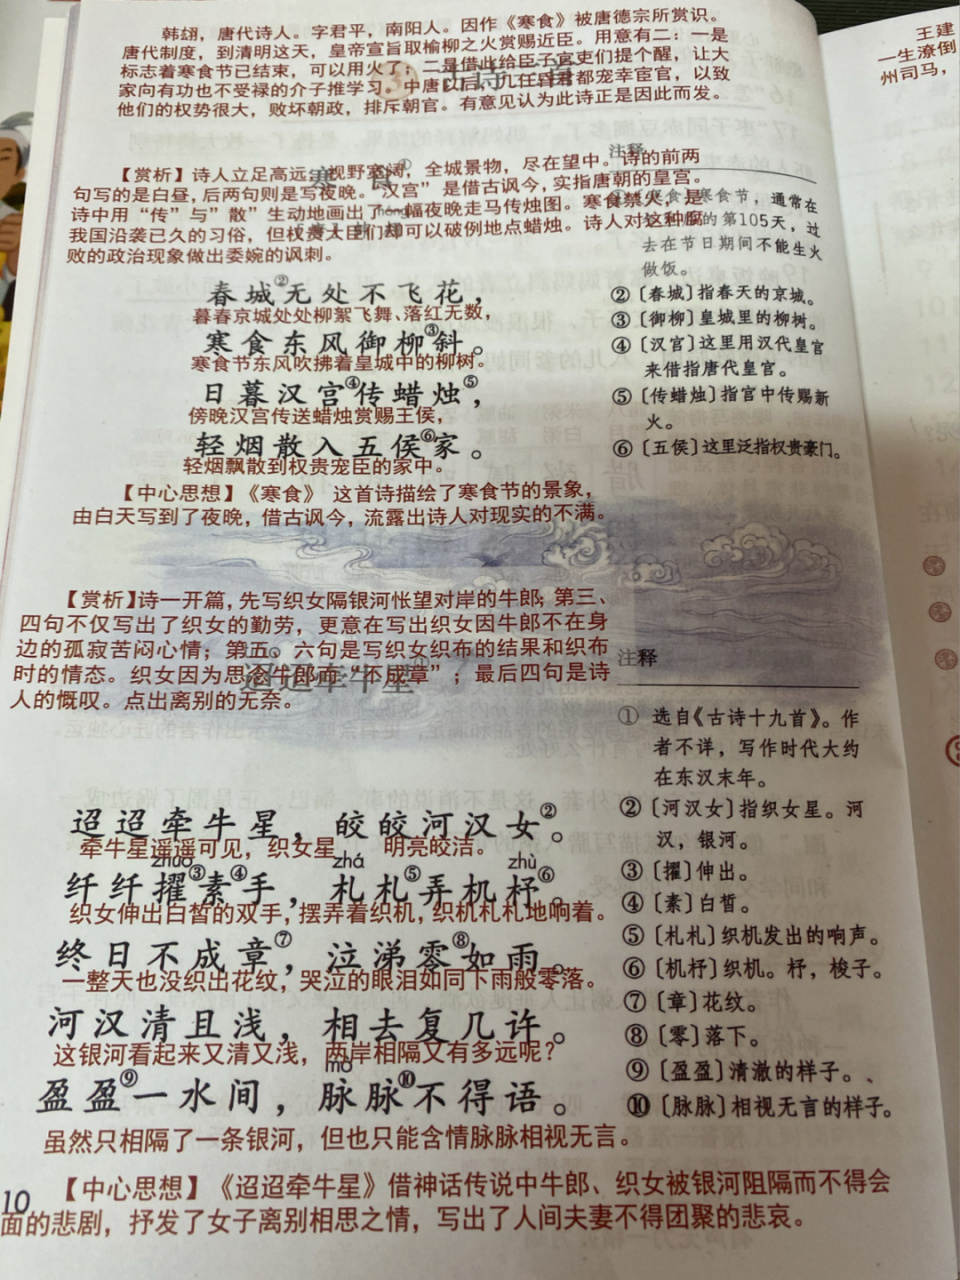 韩翃，唐代诗人。字君平，南阳人。因作《寒食》被唐德宗所赏识。
唐代制度，到清明这天，皇帝宣旨取榆柳之火赏赐近臣。用意有二：一是
标志着寒食节已结束，可以用火了；二是借此给臣子官吏们提个醒，让大
家向有功也不受禄的介子推学习。中唐以后，几任昏君都宠幸宦官，以致
他们的权势很大，败坏朝政，排斥朝官。有意见认为此诗正是因此而发。
③古诗三首
王建
一生潦倒
州司马，
寒食①
【赏析】诗人立足高远，视野宽阔，全城景物，尽在望中。诗的前两
句写的是白昼，后两句则是写夜晚。“汉宫”是借古讽今，实指唐朝的皇宫。
诗中用“传”与”散”生动地画出了一幅夜晚走马传烛图。寒食禁火，是
我国沿袭已久的习俗，但权贵大臣们却可以破例地点蜡烛。诗人对这种腐
败的政治现象做出委婉的讽刺。
春城②无处不飞花，
暮春京城处处柳絮飞舞、落红无数，
寒食东风御柳③斜。
寒食节东风吹拂着皇城中的柳树。
日暮汉宫④传蜡烛⑤，
傍晚汉宫传送蜡烛赏赐王侯，
轻烟散入五侯⑥家。
轻烟飘散到权贵宠臣的家中。
【中心思想】《寒食》 这首诗描绘了寒食节的景象，
由白天写到了夜晚，借古讽今，流露出诗人对现实的不满。
注释
寒食节，通常在
的第105天，过
去在节日期间不能生火
做饭。
②〔春城〕指春天的京城。
③〔御柳〕皇城里的柳树。
④〔汉宫〕这里用汉代皇宫
来借指唐代皇宫。
⑤〔传蜡烛〕指宫中传赐新
火。
⑥〔五侯〕这里泛指权贵豪门。
【赏析】诗一开篇，先写织女隔银河怅望对岸的牛郎；第三、
四句不仅写出了织女的勤劳，更意在写出织女因牛郎不在身
边的孤寂苦闷心情；第五、六句是写织女织布的结果和织布
时的情态。织女因为思念牛郎而“不成章”；最后四句是诗
人的慨叹。点出离别的无奈。
迢迢牵牛星①
迢迢牵牛星，皎皎河汉女②。
牵牛星遥遥可见，织女星 明亮皎洁。
zhuó zhá zhù
纤纤擢③素④手，札札⑤弄机杼⑥。
织女伸出白皙的双手，摆弄着织机，织机札札地响着。
终日不成章⑦，泣涕零⑧如雨。
一整天也没织出花纹，哭泣的眼泪如同下雨般零落。
河汉清且浅，相去复几许。
这银河看起来又清又浅，两岸相隔又有多远呢？
mò
盈盈⑨一水间，脉脉⑩不得语。
虽然只相隔了一条银河，但也只能含情脉脉相视无言。
注释
① 选自《古诗十九首》。作
者不详，写作时代大约
在东汉末年。
②〔河汉女〕指织女星。河
汉，银河。
③〔擢〕伸出。
④〔素〕白皙。
⑤〔札札〕织机发出的响声。
⑥〔机杼〕织机。杼，梭子。
⑦〔章〕花纹。
⑧〔零〕落下。
⑨〔盈盈〕清澈的样子。
⑩〔脉脉〕相视无言的样子。
10
【中心思想】《迢迢牵牛星》借神话传说中牛郎、织女被银河阻隔而不得会
面的悲剧，抒发了女子离别相思之情，写出了人间夫妻不得团聚的悲哀。